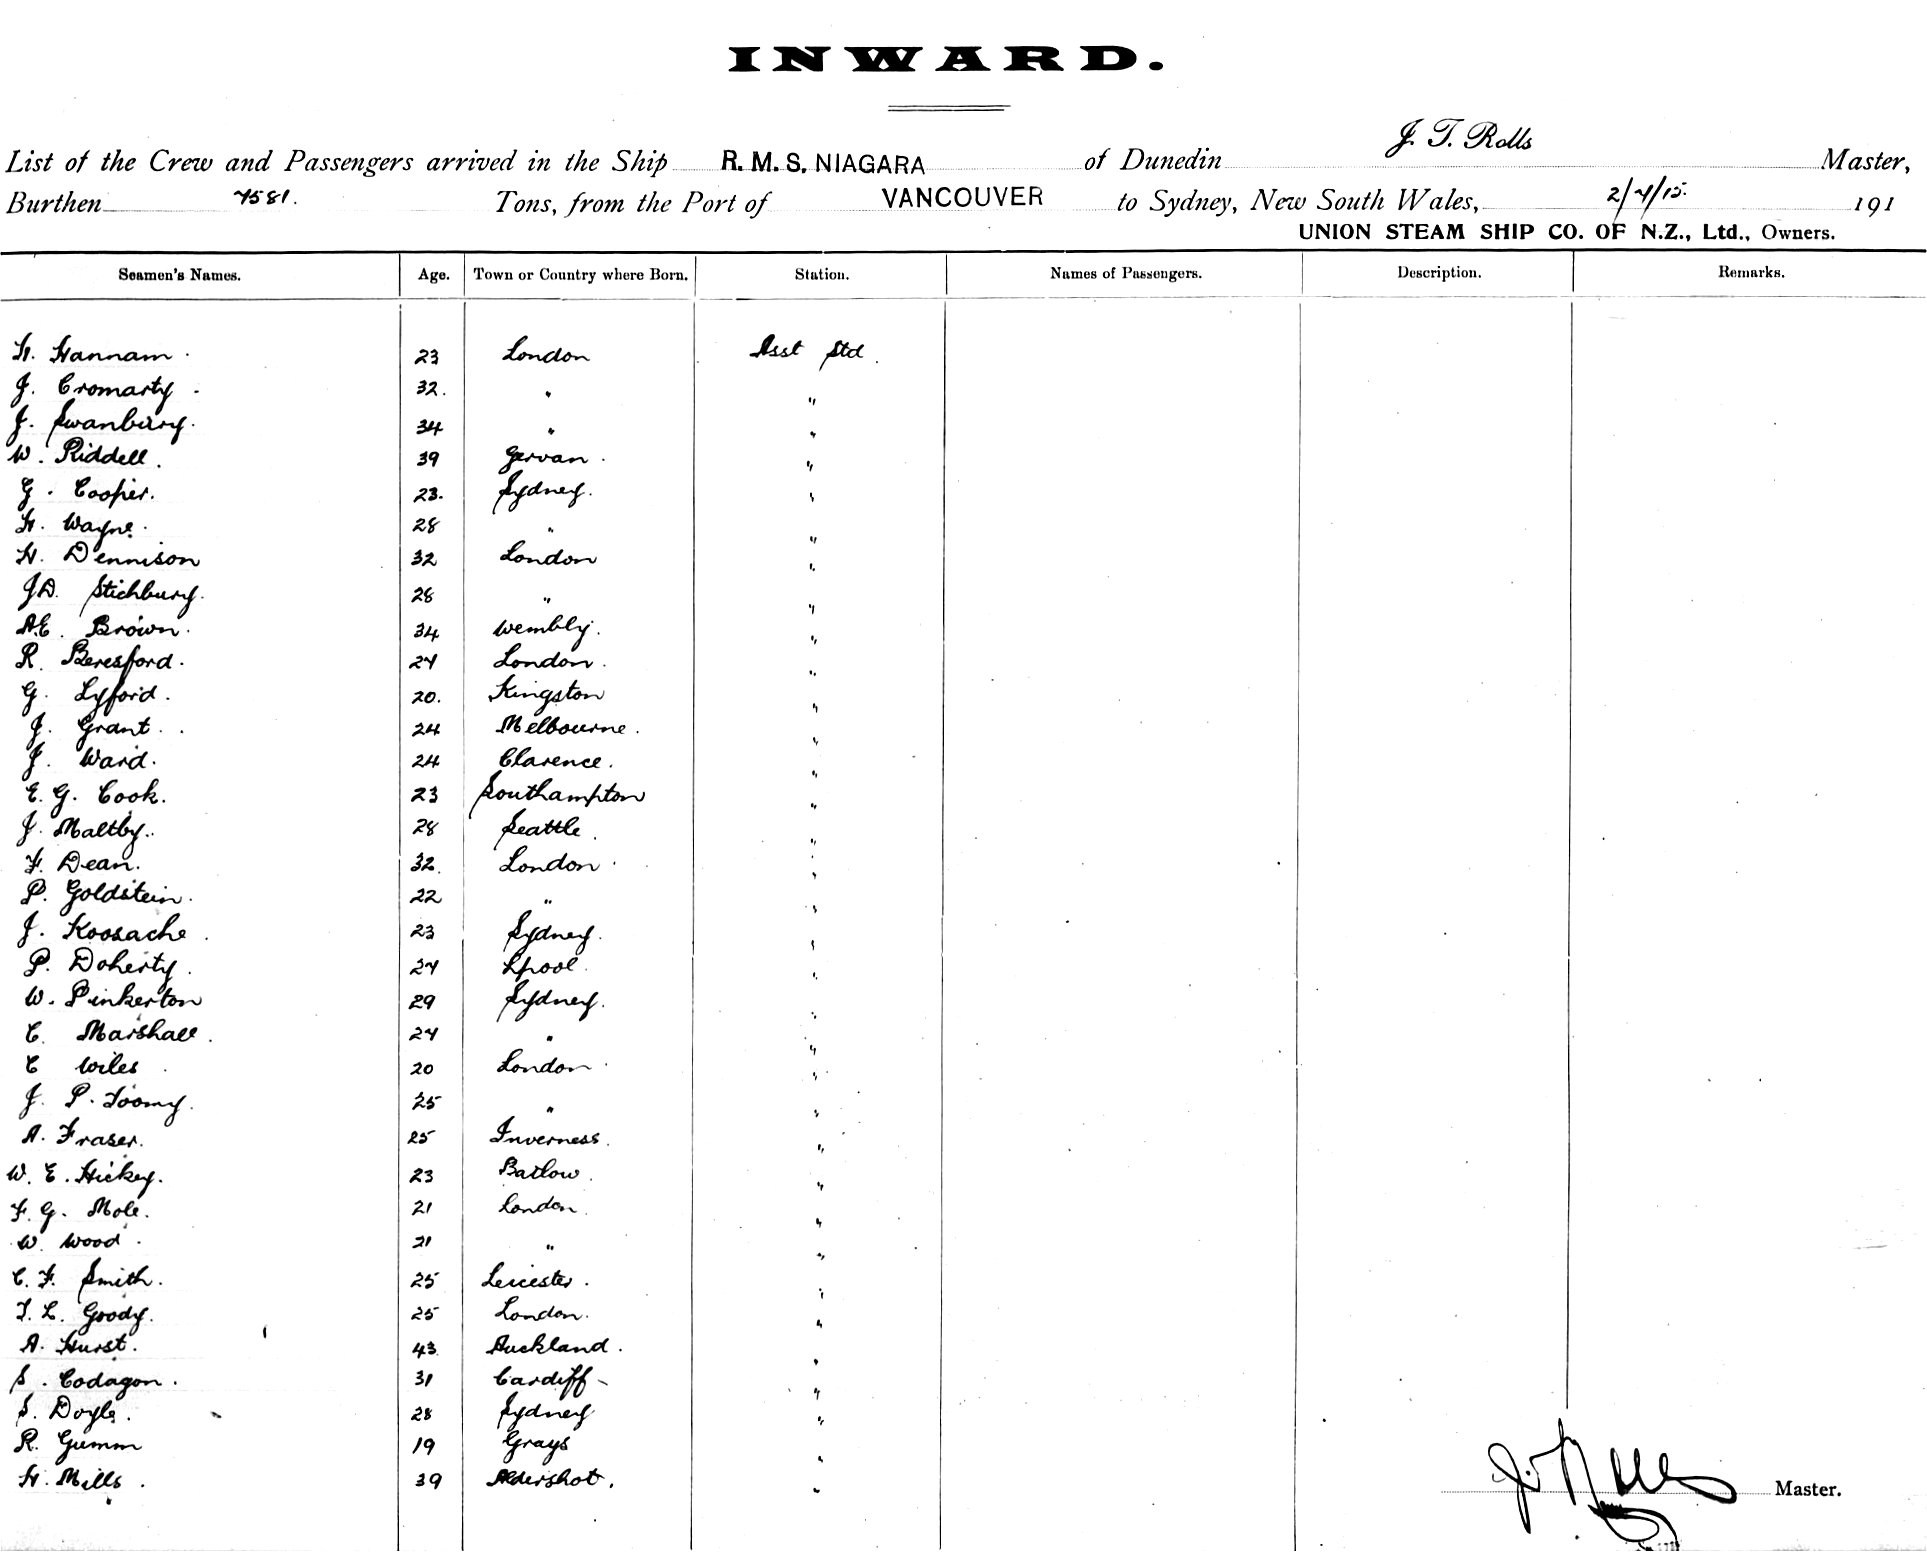 INWARD.
J. T. Rolls
List of the Crew and Passengers arrived in the Ship R. M. S. NIAGARA of Dunedin Master,
Burthen 7581. Tons, from the Port of VANCOUVER to Sydney, New South Wales, 2/7/15. 191
UNION STEAM SHIP CO. OF N.Z., Ltd., Owners.
Seamen's Names. Age. Town or Country where Born. Station. Names of Passengers. Description. Remarks.
H. Hannam. 23 London Asst Std.
J. Cromarty. 32. " "
J. Swanbury. 34 " "
W. Riddell. 39 Gervan. "
G. Cooper. 23. Sydney. "
H. Wayne. 28 " "
H. Dennison 32 London "
J.D. Stichbury. 28 " "
A.E. Brown. 34 Wembly. "
R. Beresford. 24 London. "
G. Lyford. 20. Kingston "
J. Grant. 24 Melbourne. "
J. Ward. 24 Clarence. "
E. G. Cook. 23 Southampton "
J. Maltby. 28 Seattle. "
F. Dean. 32. London. "
P. Goldstein. 22 " "
J. Koosache. 23 Sydney. "
P. Doherty. 24 Lpool. "
W. Pinkerton 29 Sydney. "
C. Marshall. 24 " "
C Wiles 20 London "
J. P. Toomy. 25 " "
A. Fraser. 25 Inverness. "
W. E. Hickey. 23 Batlow. "
F. G. Mole. 21 London. "
W. Wood 21 " "
C. F. Smith. 25 Leicester. "
T. L. Goody. 25 London. "
A. Hurst. 43 Auckland. "
S. Codagon. 31 Cardiff "
S. Doyle. 28 Sydney "
R. Gumm 19 Grays "
H. Mills. 39 Aldershot. "
J. T. Rolls Master.